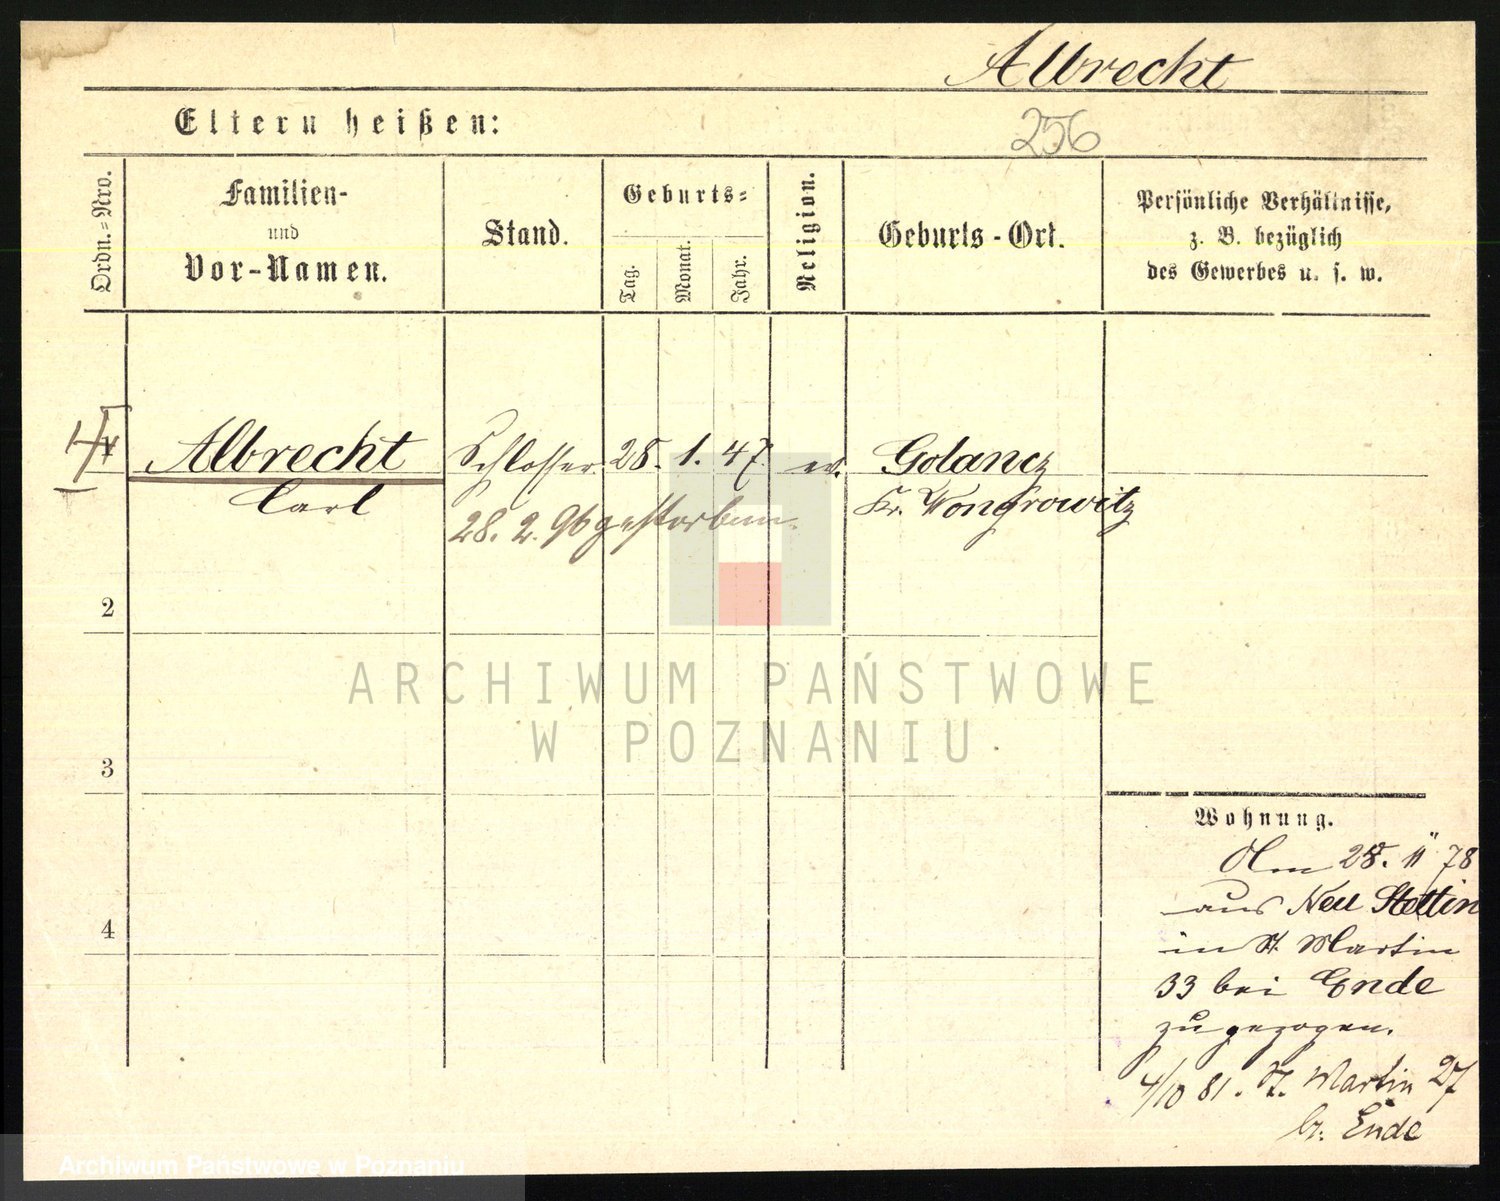 Albrecht
Eltern heißen:
256
Ordn.=Nro.
Familien-
und
Vor-Namen.
Stand.
Geburts=
Tag.
Monat.
Jahr.
Religion.
Geburts-Ort.
Persönliche Verhältnisse,
z. B. bezüglich
des Gewerbes u. s. w.
Albrecht Schlosser 28. 1. 47. ev. Golancz
Carl Kr. Wongrowitz
28. 2. 96 gestorben.
2
3
4
ARCHIWUM PAŃSTWOWE
W POZNANIU
Wohnung.
Am 28. 11 78
aus Neu Stettin
in St. Martin
33 bei Ende
zugezogen.
4/10 81. St. Martin 27
b. Ende
Archiwum Państwowe w Poznaniu